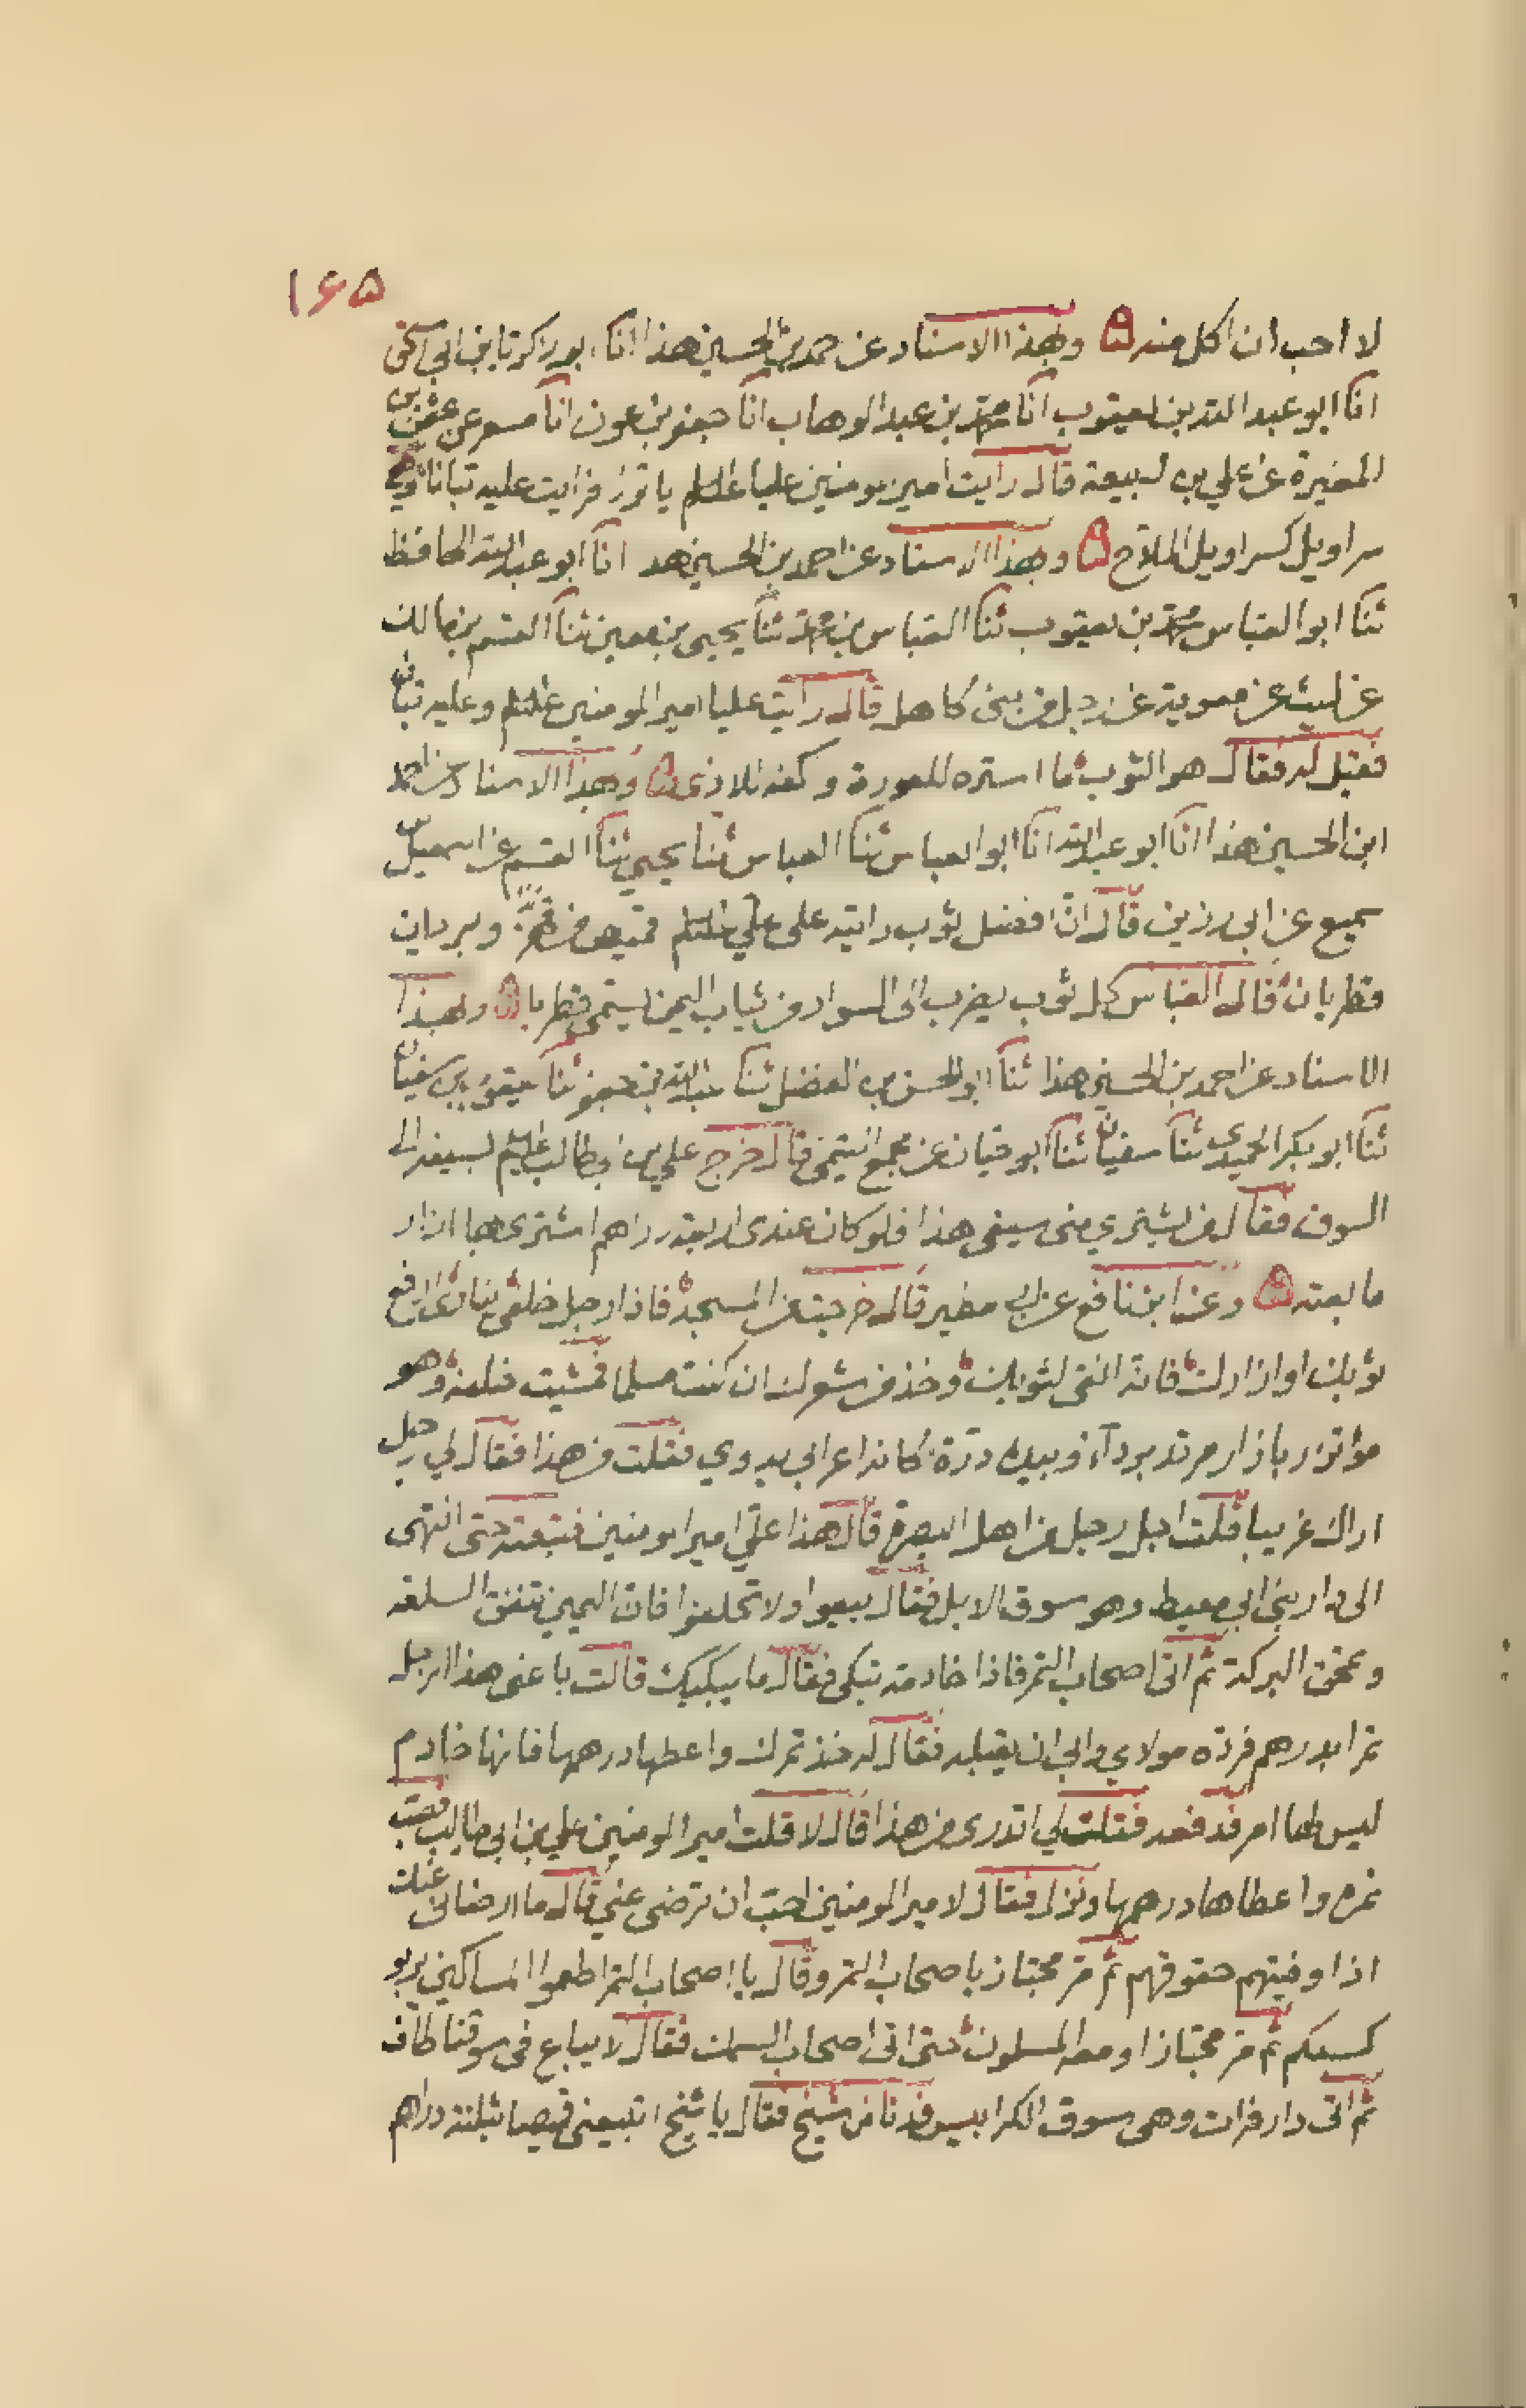 ١٦٥
لا احب ان اكل منه وبهذا الاسناد عن احمد بن الحسين هذا انا ابو زكريا بن ابي اسحق
انا ابو عبد الله بن يعقوب انا محمد بن عبد الوهاب انا جعفر بن عون انا مسعر عن عثمن بن
المغيرة عن علي بن ربيعة قال رايت امير المومنين عليا عليه السلم ياتزر فرايت عليه تبانا
سراويل كسراويل الملاح وبهذا الاسناد عن احمد بن الحسين هذا انا ابو عبد الله الحافظ
ثنا ابو العباس محمد بن يعقوب ثنا العباس بن محمد ثنا يحيى بن معين ثنا القسم بن مالك
عن ليث عن معوية عن رجل من بني كاهل قال رايت عليا امير المومنين عليه السلم وعليه تبان
فقيل له فقال هو الثوب ما استره للعورة وكفه للاذى وبهذا الاسناد عن احمد
ابن الحسين هذا انا ابو عبد الله انا ابو العباس ثنا العباس ثنا يحيى ثنا القسم عن اسمعيل بن
سميع عن ابي رزين قال ان افضل ثوب رايته على علي عليه السلم قميص من قهز وبردان
قطريان قال العباس كل ثوب يضرب الى السواد من ثياب اليمن يسمى قطريا وبهذا
الاسناد عن احمد بن الحسين هذا ثنا ابو الحسن بن الفضل ثنا عبد الله بن جعفر ثنا يعقوب بن سفيان
ثنا ابو بكر الحميدي ثنا سفيان ثنا ابو حيان عن مجمع التيمي قال خرج علي بن ابي طالب عليه السلم بسيفه الى
السوق فقال من يشتري مني سيفي هذا فلو كان عندي اربعة دراهم اشتري بها ازار
ما بعته وعن ابن نافع عن ابي مطير قال خرجت عن المسجد فاذا رجل خلفي ينادي ارفع
ثوبك او ازارك فانه انقى لثوبك وخذ من شعرك ان كنت مسلما فمشيت خلفه وهو
مؤتزر بازار مرتد برداء وبيده درة كانه اعرابي بدوي فقلت من هذا فقال لي رجل
اراك غريبا قلت اجل رجل من اهل البصرة قال هذا علي امير المومنين فتبعته حتى انتهى
الى دار بني ابي معيط وهو سوق الابل فقال بيعوا ولا تحلفوا فان اليمين تنفق السلعة
وتمحق البركة ثم اتى اصحاب التمر فاذا خادمة تبكي فقال ما يبكيك قالت باعني هذا الرجل
تمرا بدرهم فرده مولاي وابى ان يقبله فقال له خذ تمرك واعطها درهمها فانها خادم
ليس لها امر فدفعه فقلت لي اتدري من هذا قال لا قلت امير المومنين علي بن ابي طالب فصب
تمره واعطاها درهمها ونزل فقال لامير المومنين احب ان ترضى عني قال ما ارضاني عنك
اذا وفيتهم حقوقهم ثم مر مجتازا باصحاب التمر وقال يا اصحاب التمر اطعموا المساكين يربو
كسبكم ثم مر مجتازا ومعه المسلمون حتى اتى اصحاب السمك فقال لا يباع في سوقنا طاف
ثم اتى دار فرات وهي سوق الكرابيس فدنا من شيخ فقال يا شيخ اتبيعني قميصا بثلثة دراهم